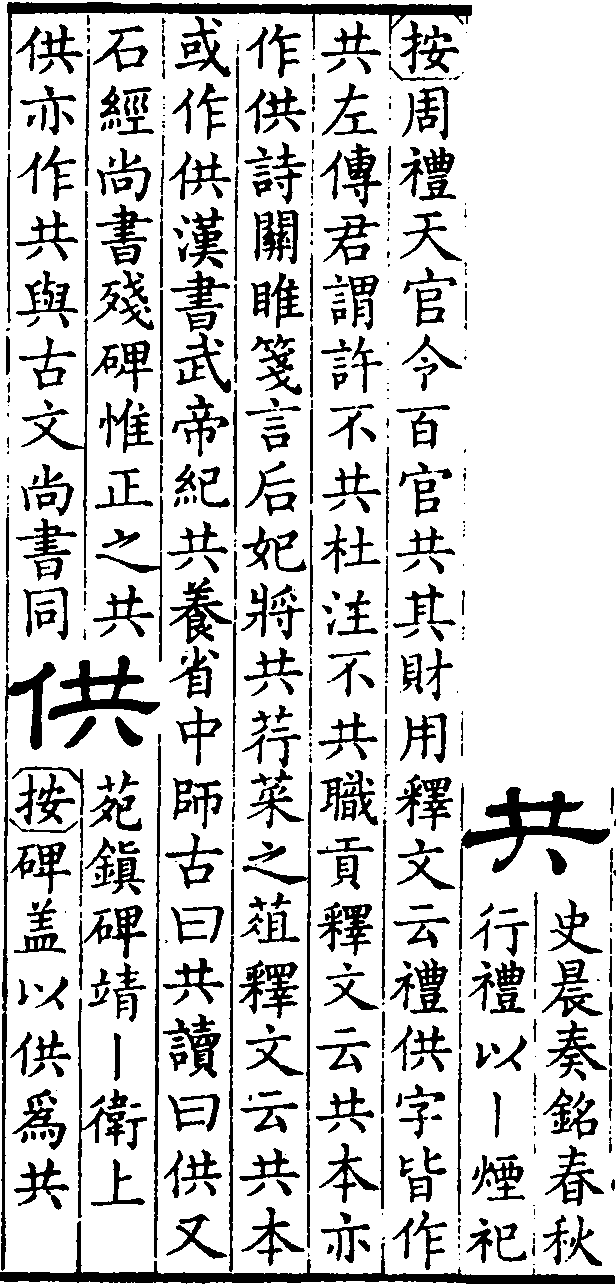 共
史晨奏銘春秋
行禮以丨煙祀
按周禮天官令百官共其財用釋文云禮供字皆作
共左傳君謂許不共杜注不共職貢釋文云共本亦
作供詩關雎箋言后妃將共荇菜之葅釋文云共本
或作供漢書武帝紀共養省中師古曰共讀曰供又
石經尚書殘碑惟正之共
供亦作共與古文尚書同
供
苑鎮碑靖丨衛上
按碑盖以供爲共